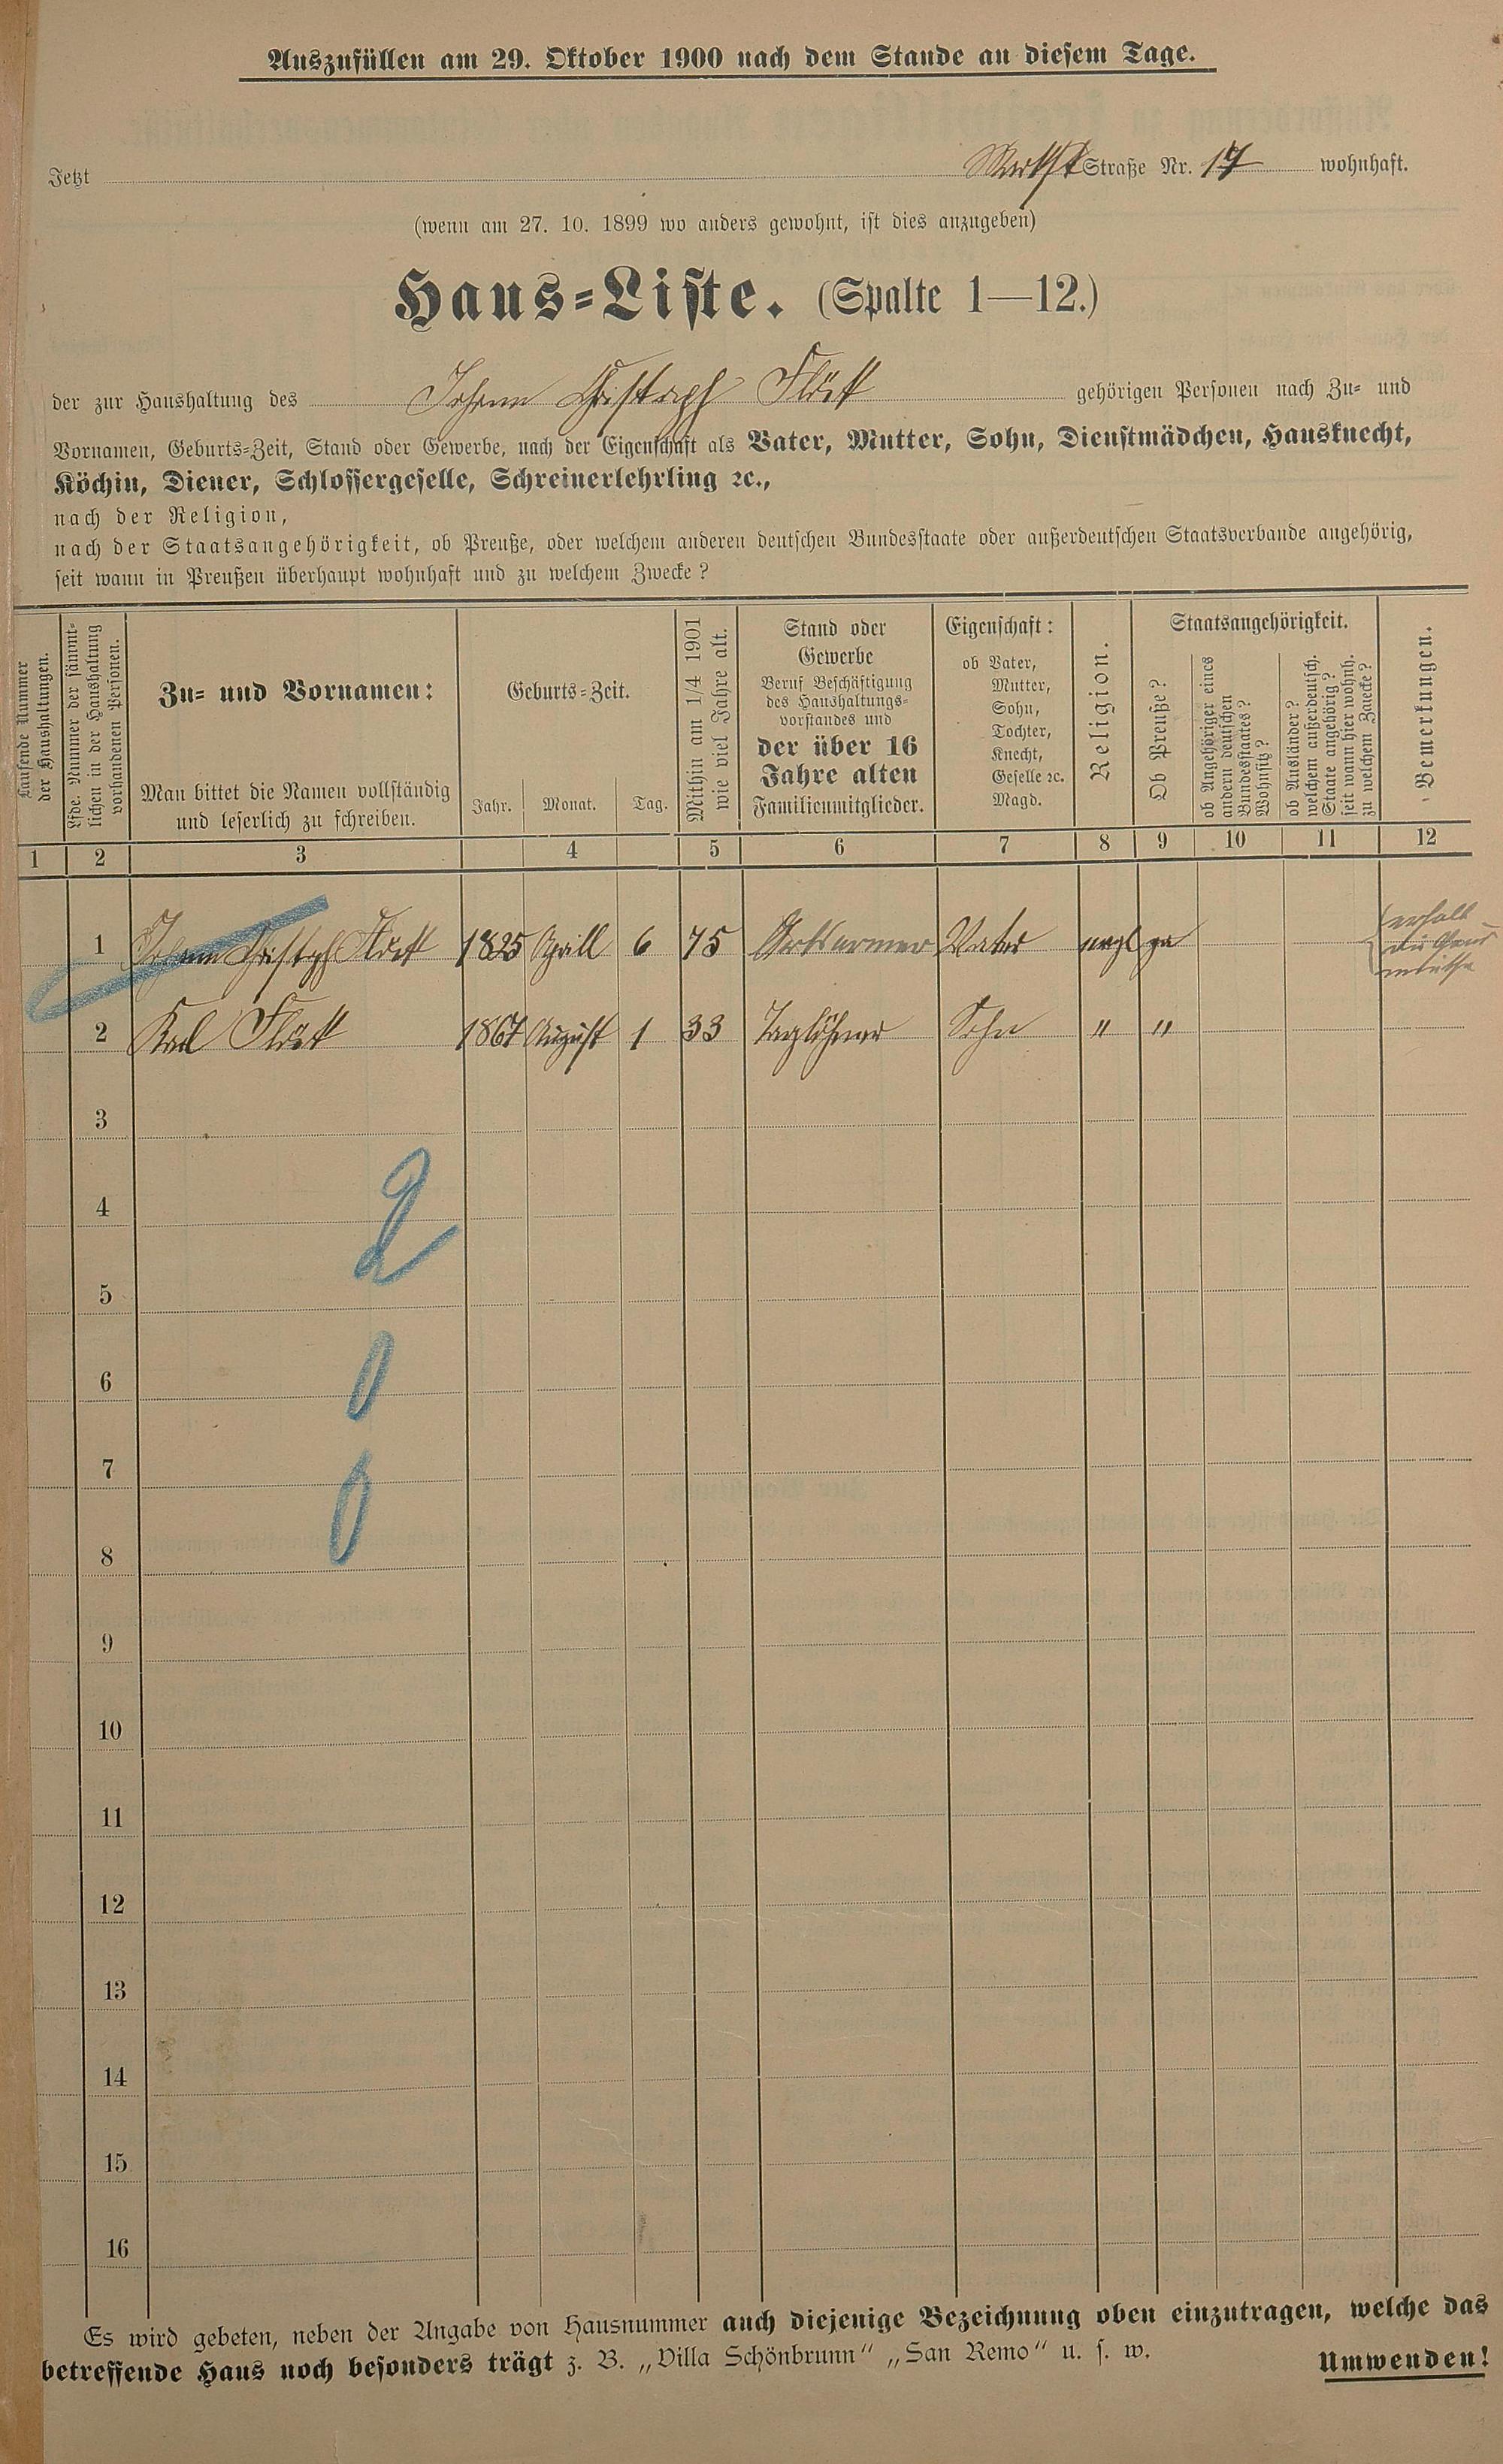 Auszufüllen am 29. Oktober 1900 nach dem Stande an diesem Tage.
Jetzt Straße Nr. 17 wohnhaft.
(wenn am 27. 10. 1899 wo anders gewohnt, ist dies anzugeben)
Haus-Liste. (Spalte 1—12.)
der zur Haushaltung des Johann Christoph gehörigen Personen nach Zu- und
Vornamen, Geburts-Zeit, Stand oder Gewerbe, nach der Eigenschaft als Vater, Mutter, Sohn, Dienstmädchen, Hausknecht,
Köchin, Diener, Schlossergeselle, Schreinerlehrling ꝛc.,
nach der Religion,
nach der Staatsangehörigkeit, ob Preuße, oder welchem anderen deutschen Bundesstaate oder außerdeutschen Staatsverbande angehörig,
seit wann in Preußen überhaupt wohnhaft und zu welchem Zwecke?
Laufende Nummer
der Haushaltungen.
Lfde. Nummer der sämmt-
lichen in der Haushaltung
vorhandenen Personen.
Zu- und Vornamen:
Man bittet die Namen vollständig
und leserlich zu schreiben.
Geburts-Zeit.
Jahr. Monat. Tag.
Mithin am 1/4 1901
wie viel Jahre alt.
Stand oder
Gewerbe
Beruf Beschäftigung
des Haushaltungs-
vorstandes und
der über 16
Jahre alten
Familienmitglieder.
Eigenschaft:
ob Vater,
Mutter,
Sohn,
Tochter,
Knecht,
Geselle ꝛc.
Magd.
Religion.
Staatsangehörigkeit.
Ob Preuße?
ob Angehöriger eines
andern deutschen
Bundesstaates?
Wohnsitz?
ob Ausländer?
welchem außerdeutsch.
Staate angehörig?
seit wann hier wohnh.
zu welchem Zwecke?
Bemerkungen.
1 2 3 4 5 6 7 8 9 10 11 12
1 Johann Christoph 1825 Aprill 6 75 Ortsarmer Vater ja
2 Karl 1867 August 1 33 Taglöhner Sohn " "
3
4
2
5
6
0
7
0
8
9
10
11
12
13
14
15
16
Es wird gebeten, neben der Angabe von Hausnummer auch diejenige Bezeichnung oben einzutragen, welche das
betreffende Haus noch besonders trägt z. B. „Villa Schönbrunn" „San Remo" u. s. w. Umwenden!